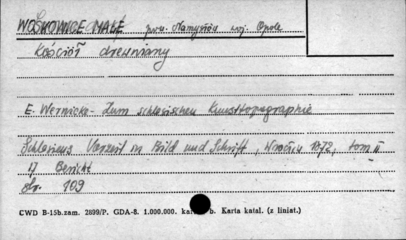 WOŚKOWICE MAŁE pow. Namysłów woj. Opole
Kościół drewniany
E. Wernicke - Zum schlesischen Kunsttopographie
Schlesiens Vorzeit in Bild und Schrift, Wrocław 1872, tom II
17 Bericht
str. 109
CWD B-15b.zam. 2899/P. GDA-8. 1.000.000. b. Karta katal. (z liniat.)